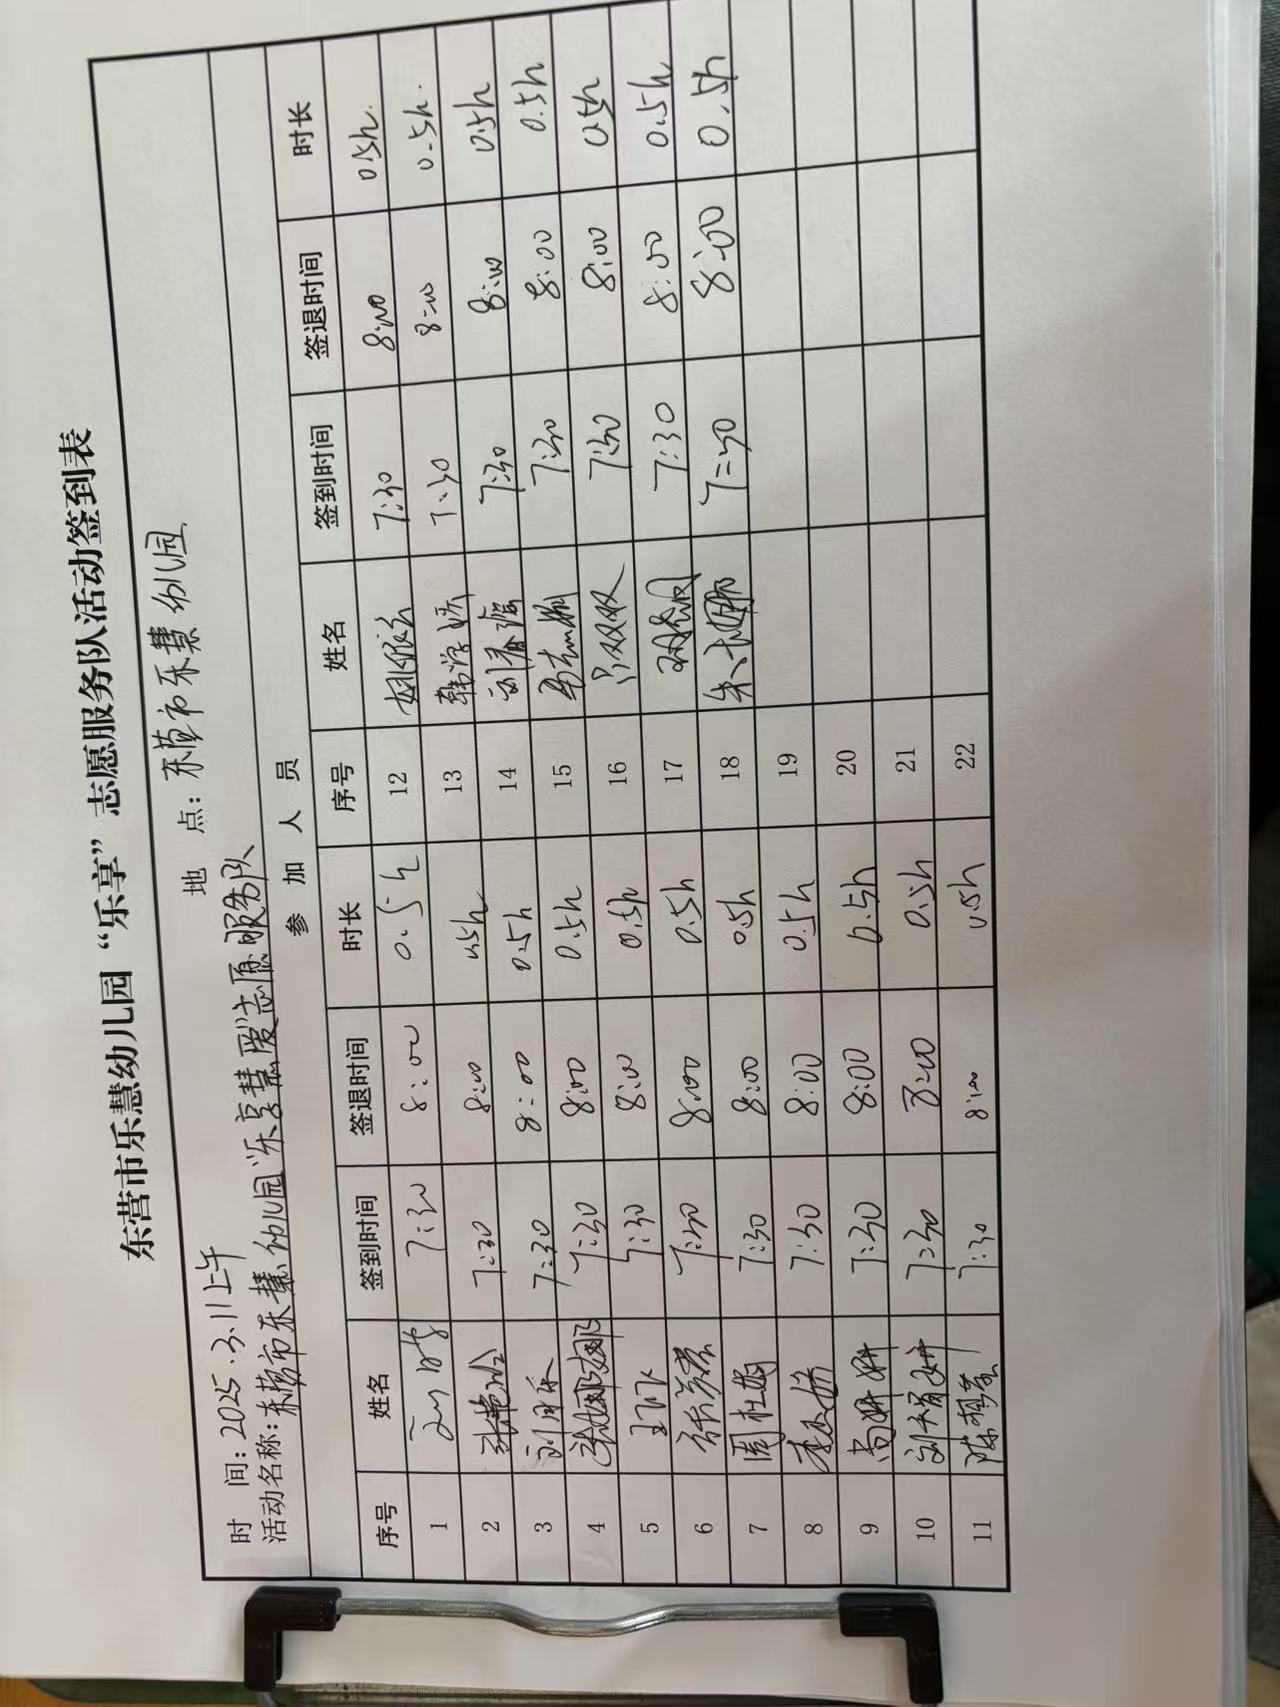 东营市乐慧幼儿园“乐享”志愿服务队活动签到表
时 间：2025.3.11上午 地 点：东营市乐慧幼儿园
活动名称：东营市乐慧幼儿园“乐享慧爱”志愿服务队
参 加 人 员
序号 姓名 签到时间 签退时间 时长 序号 姓名 签到时间 签退时间 时长
1 7:30 8:00 0.5h 12 7:30 8:00 0.5h.
2 7:30 8:00 0.5h 13 韩学娇 7:30 8:00 0.5h.
3 7:30 8:00 0.5h 14 刘春 7:30 8:00 0.5h
4 张娜娜 7:30 8:00 0.5h 15 7:30 8:00 0.5h
5 7:30 8:00 0.5h 16 吕双双 7:30 8:00 0.5h
6 7:30 8:00 0.5h 17 7:30 8:00 0.5h
7 周杜娟 7:30 8:00 0.5h 18 7:30 8:00 0.5h
8 7:30 8:00 0.5h 19
9 尚妍妍 7:30 8:00 0.5h 20
10 7:30 8:00 0.5h 21
11 7:30 8:00 0.5h 22